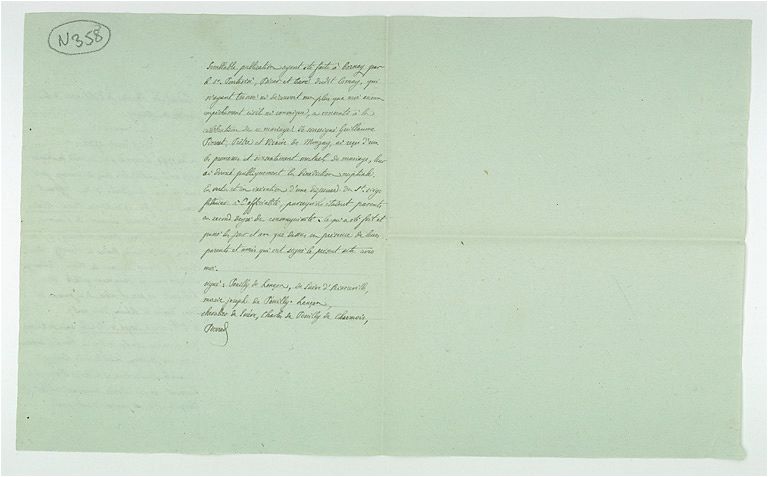 N358
Semblable publication ayant été faite à Cornay par
le Sr. , Prieur et Curé dudit Cornay, qui
n'ayant trouvé ni découvert non plus que moi aucun
empêchement civil ni canonique, a consenti à la
célébration de ce mariage, je soussigné Guillaume
Pierrot, Prêtre et Vicaire de Mouzay, ai reçu d'eux
le de mariage, leur
ai donné publiquement la bénédiction nuptiale
En vertu et en exécution d'une dispense du St. siège
à l'officialité, puisqu'ils étaient parents
au second degré de consanguinité. Ce qui a été fait et
passé les jour et an que dessus en présence de leurs
parents et amis qui ont signé le présent acte avec
moi.
signé: Pouilly de Lançon, de Suère d'
marie joseph de Pouilly-Lançon,
chevalier de Suère, Charles de Pouilly de Charmois,